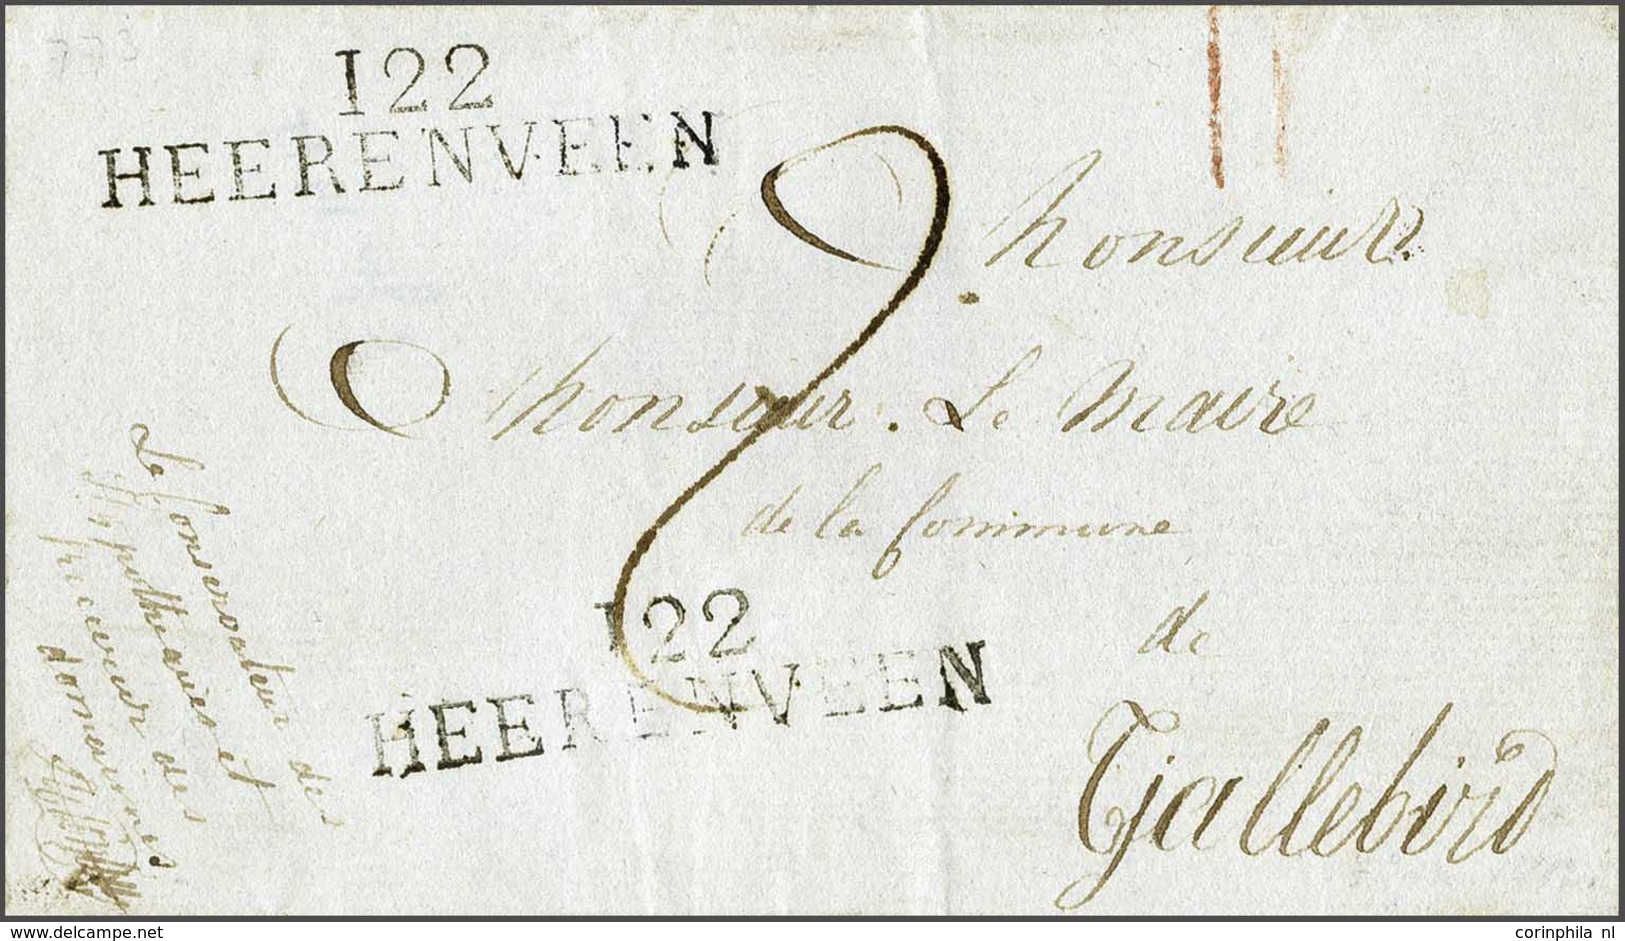 773
122
HEERENVEEN
Monsieur
Monsieur. Le Maire
de la Commune
de
Tjallebird
122
HEERENVEEN
Le Conservateur des
Hypothéaires et
receveur des
domaines
delcampe.net
corinphila nl